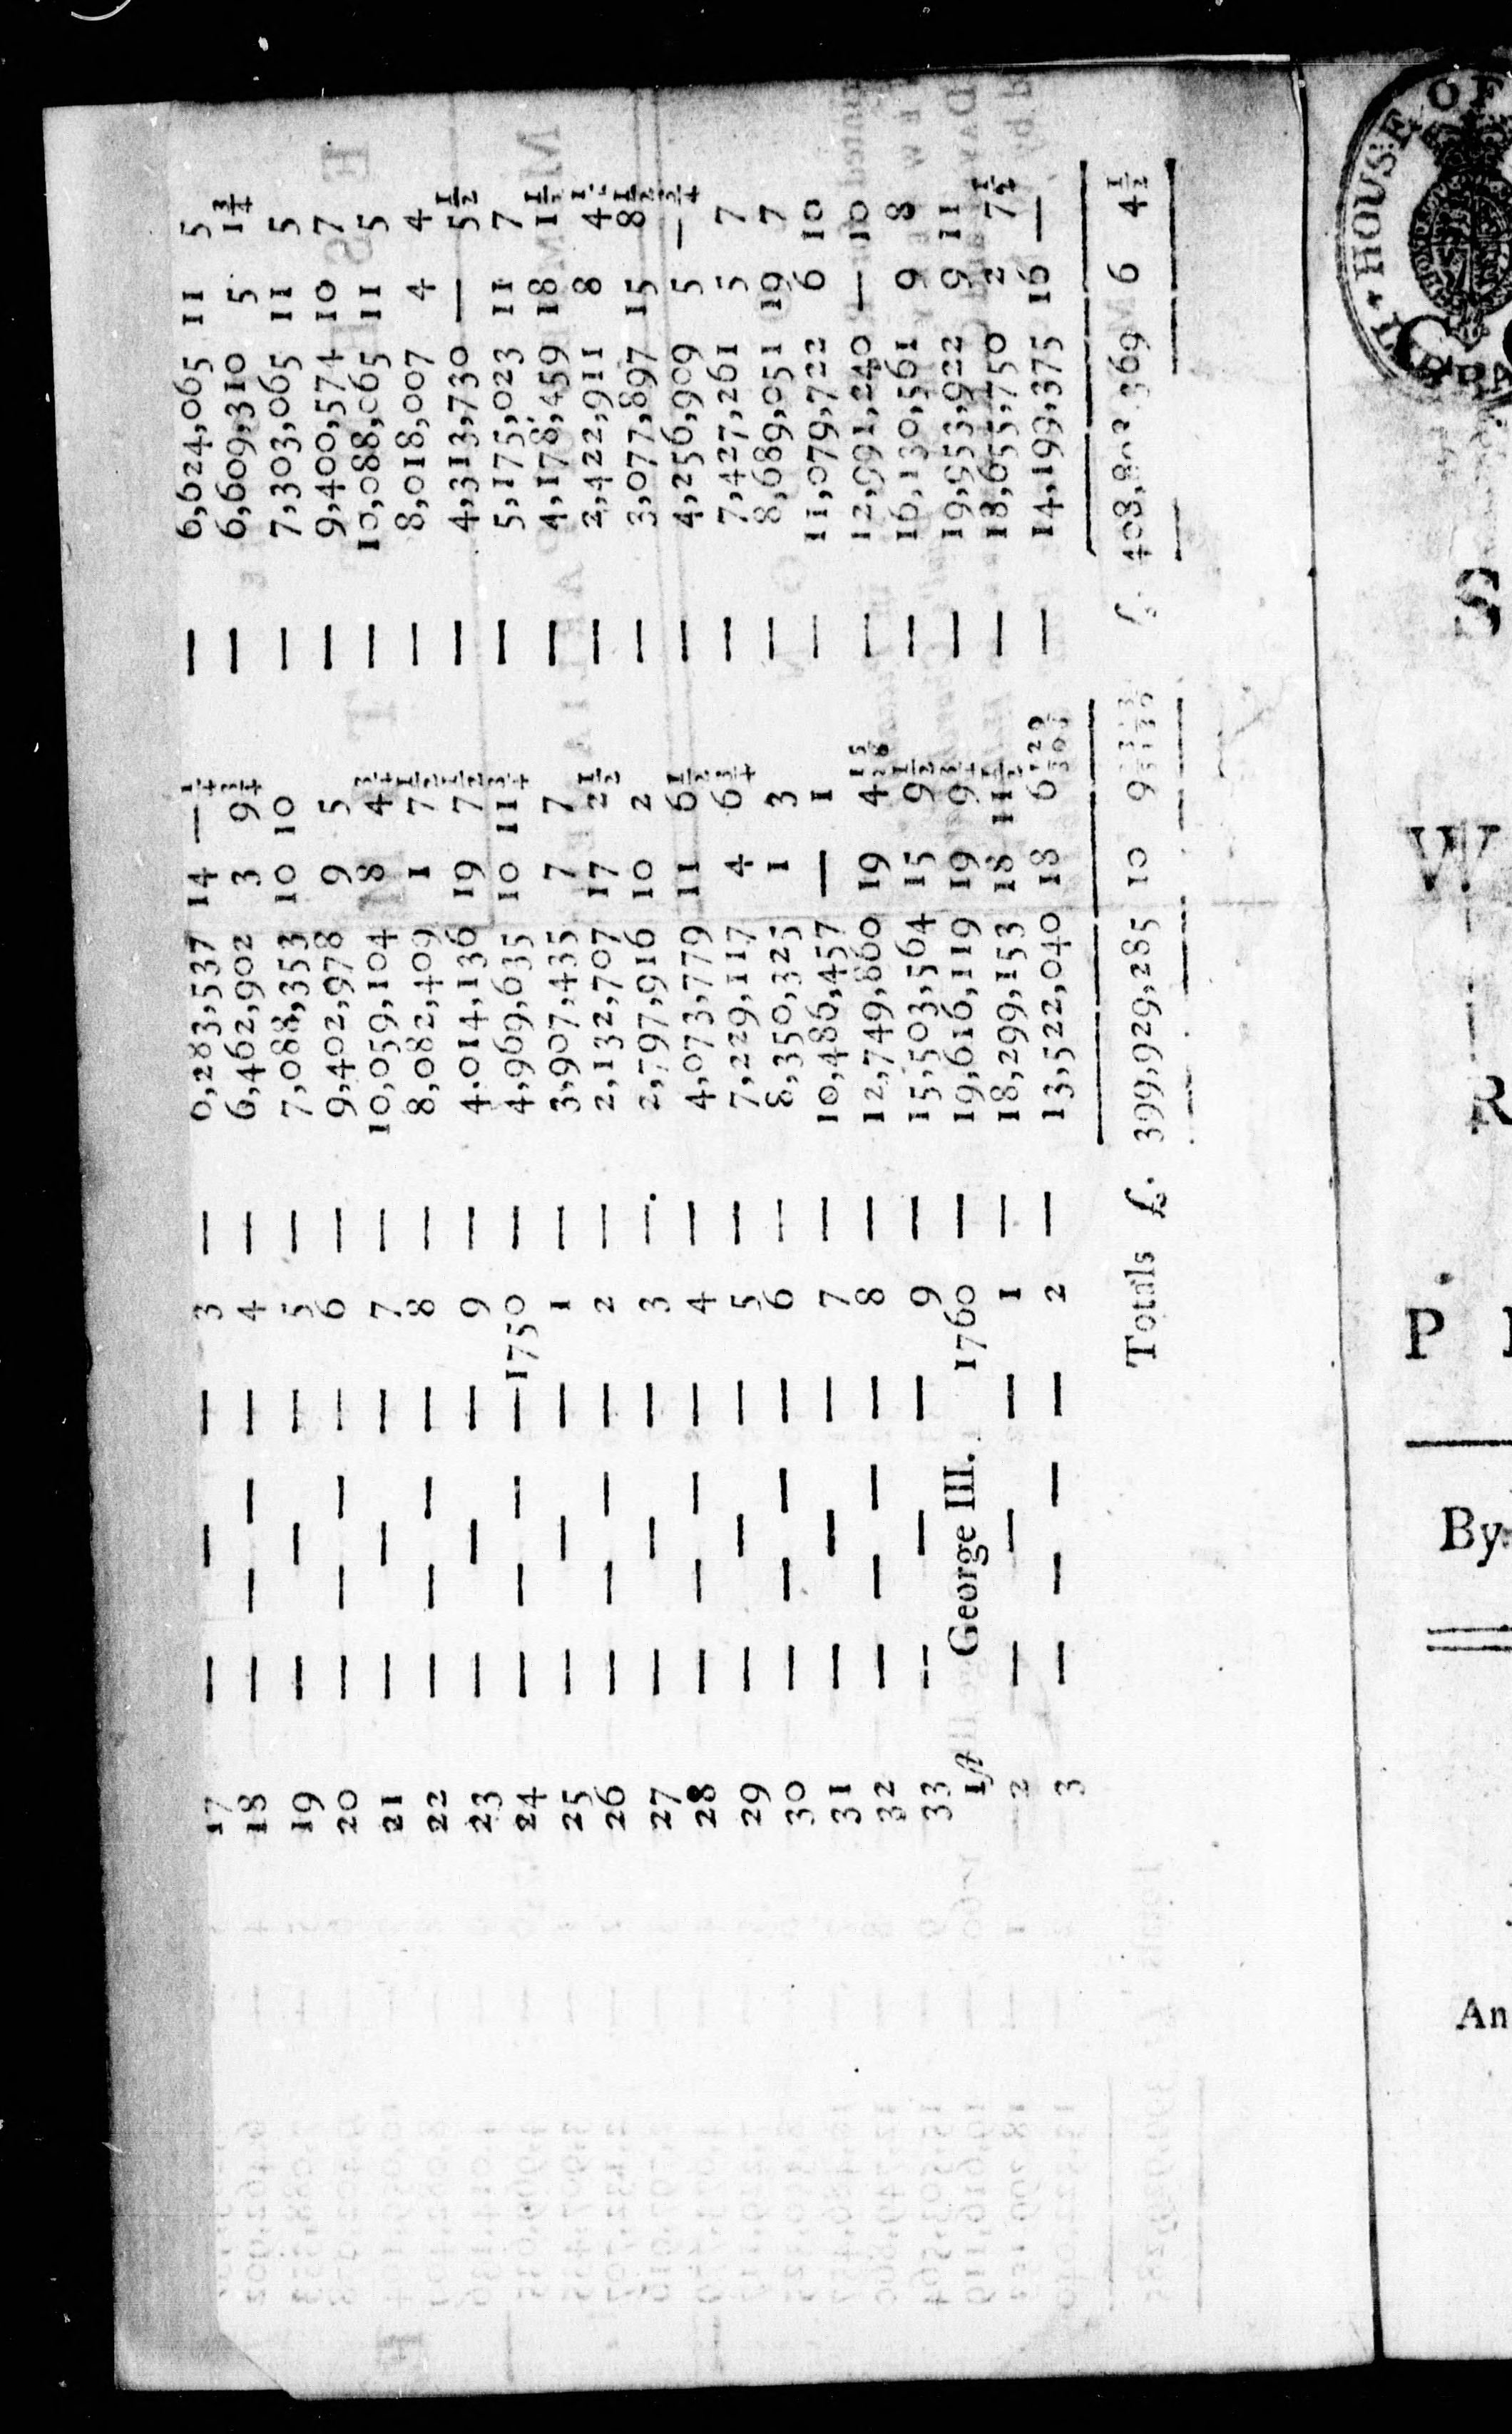 17 — — — 3 — 0,283,537 14 —¼ — 6,624,065 11 5
18 — — — — 4 — 6,462,902 3 9¾ — 6,609,310 5 1¾
19 — — — 5 — 7,088,353 10 10 — 7,303,065 11 5
20 — — — — 6 — 9,402,978 9 5 — 9,400,574 10 7
21 — — — 7 — 10,059,104 8 4¾ — 10,088,065 11 5
22 — — — — 8 — 8,082,409 1 7½ — 8,018,007 4 4
23 — — — 9 — 4,014,136 19 7½ — 4,313,730 — 5½
24 — — — — 1750 — 4,969,635 10 11¾ — 5,175,023 11 7
25 — — — 1 — 3,907,435 7 7 — 4,178,459 18 1½
26 — — — — 2 — 2,132,707 17 2½ — 2,422,911 8 4
27 — — — 3 — 2,797,916 10 2 — 3,077,897 15 8½
28 — — — — 4 — 4,073,779 11 6½ — 4,256,909 5 —¾
29 — — — 5 — 7,229,117 4 6¾ — 7,427,261 5 7
30 — — — — 6 — 8,350,325 1 3 — 8,689,051 19 7
31 — — — 7 — 10,486,457 — 1 — 11,079,722 6 10
32 — — — — 8 — 12,749,860 19 4 — 12,991,240 — 10
33 — — — 9 — 15,503,564 15 9½ — 16,130,561 9 8
1st George III. 1760 — 19,616,119 19 9¾ — 19,953,922 9 11
2 — — — 1 — 18,299,153 18 11½ — 18,655,750 2 7½
3 — — — — 2 — 13,522,040 18 6 — 14,199,375 16 —
Totals £. 399,929,285 10 9 £. 369 6 4½
HOUSE OF
S
W
R
P
By
An